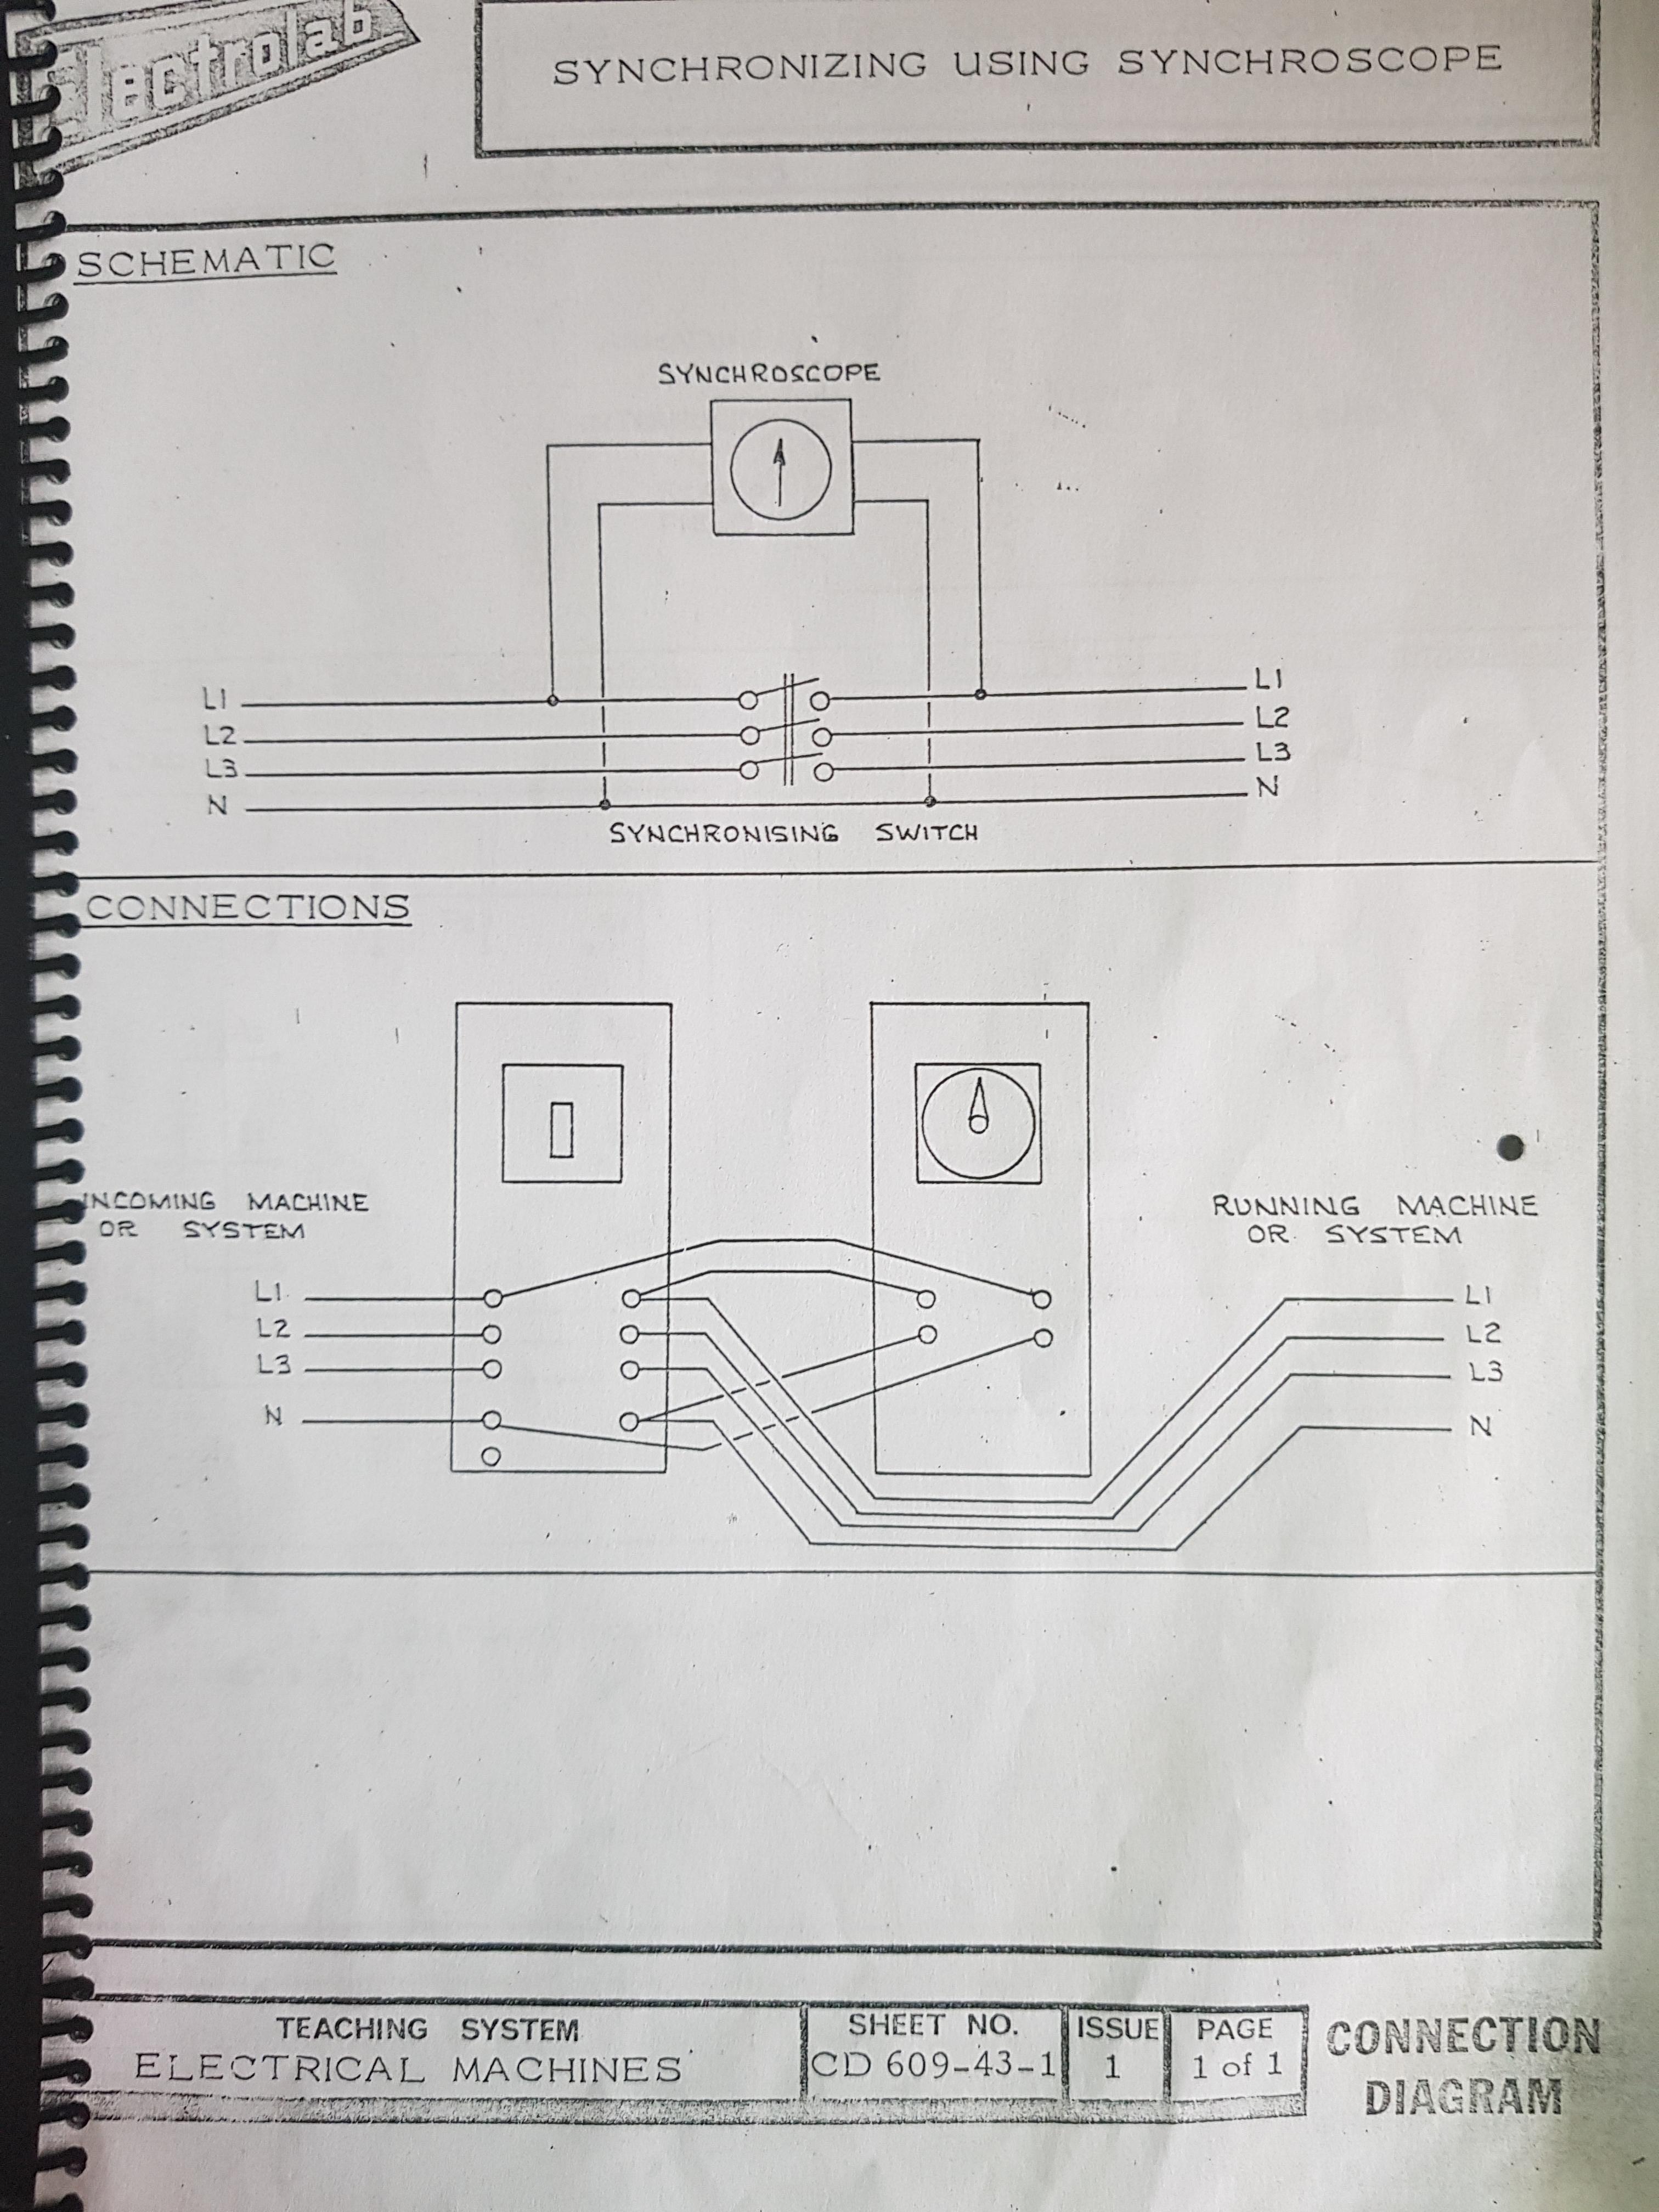 Electrolab
SYNCHRONIZING USING SYNCHROSCOPE
SCHEMATIC
SYNCHROSCOPE
L1 L1
L2 L2
L3 L3
N N
SYNCHRONISING SWITCH
CONNECTIONS
INCOMING MACHINE
OR SYSTEM
RUNNING MACHINE
OR SYSTEM
L1 L1
L2 L2
L3 L3
N N
TEACHING SYSTEM
ELECTRICAL MACHINES
SHEET NO.
CD 609-43-1
ISSUE
1
PAGE
1 of 1
CONNECTION
DIAGRAM